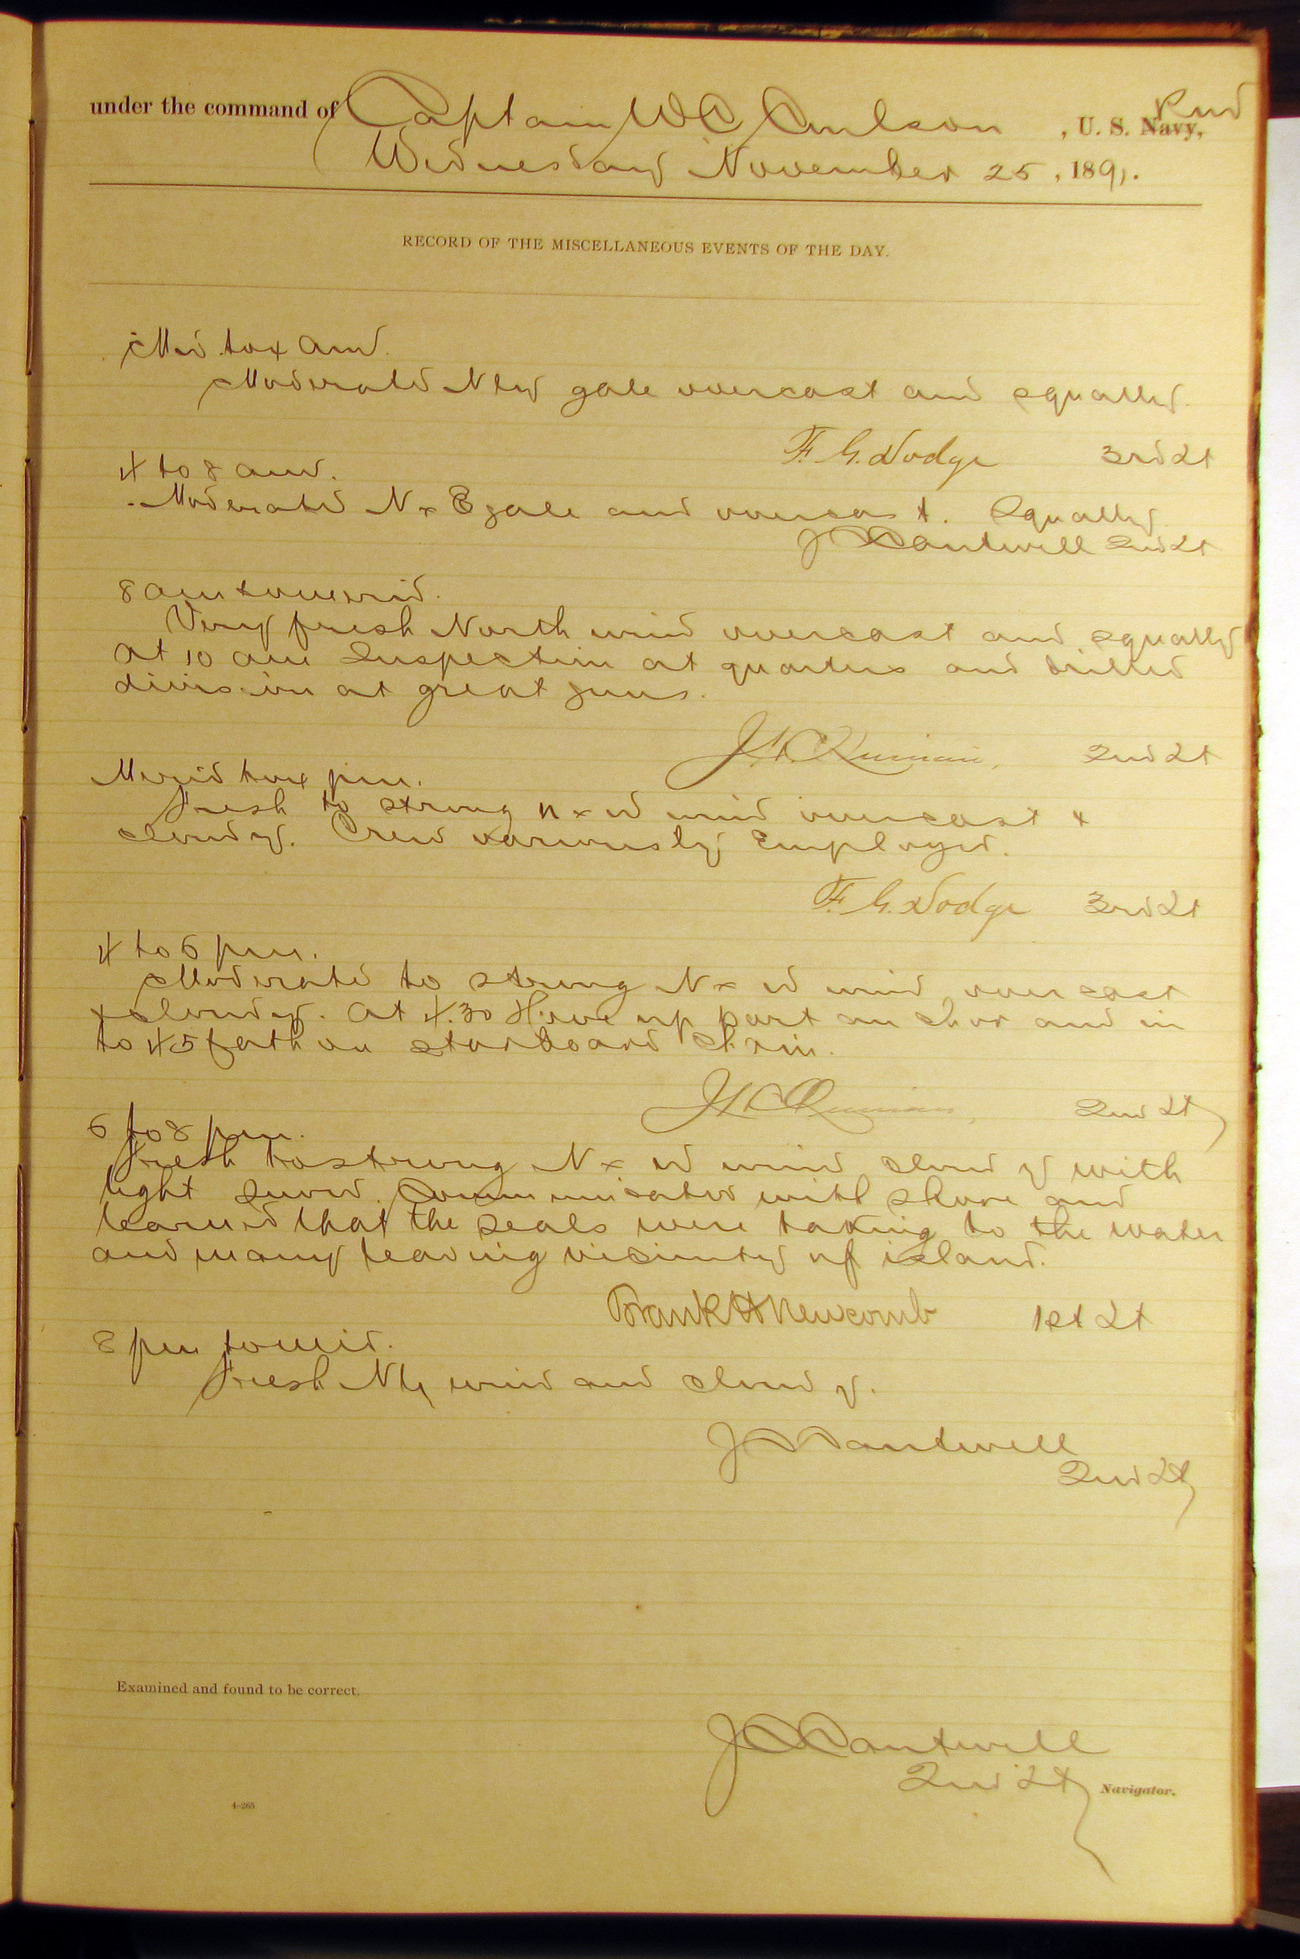 under the command of Captain W C Coulson, U. S. Navy, RM
Wednesday November 25, 1891.
RECORD OF THE MISCELLANEOUS EVENTS OF THE DAY.
Mid to 4 am.
Moderate Nly gale overcast and squally.
F. G. Dodge 3rd Lt
4 to 8 am.
Moderate N x E gale and overcast. Squally
J C Cantwell 2nd Lt
8 am to merid.
Very fresh North wind overcast and squally
At 10 am Inspection at quarters and drilled
division at great guns.
J. H. Quinan. 2nd Lt
Merid to 4 pm.
Fresh to strong N x W wind overcast &
cloudy. Crew variously employed.
F. G. Dodge 3rd Lt
4 to 6 pm.
Moderate to strong N x W wind overcast
& cloudy. At 4.30 Hove up port anchor and in
to 45 fath on starboard chain.
J H Quinan 2nd Lt
6 to 8 pm.
Fresh to strong N x W wind cloudy with
light snow. Communicated with shore and
learned that the seals were taking to the water
and many leaving vicinity of island.
Frank H Newcomb 1st Lt
8 pm to mid.
Fresh Nly wind and cloudy.
J C Cantwell
2nd Lt
Examined and found to be correct.
J C Cantwell
2nd Lt Navigator.
4-265